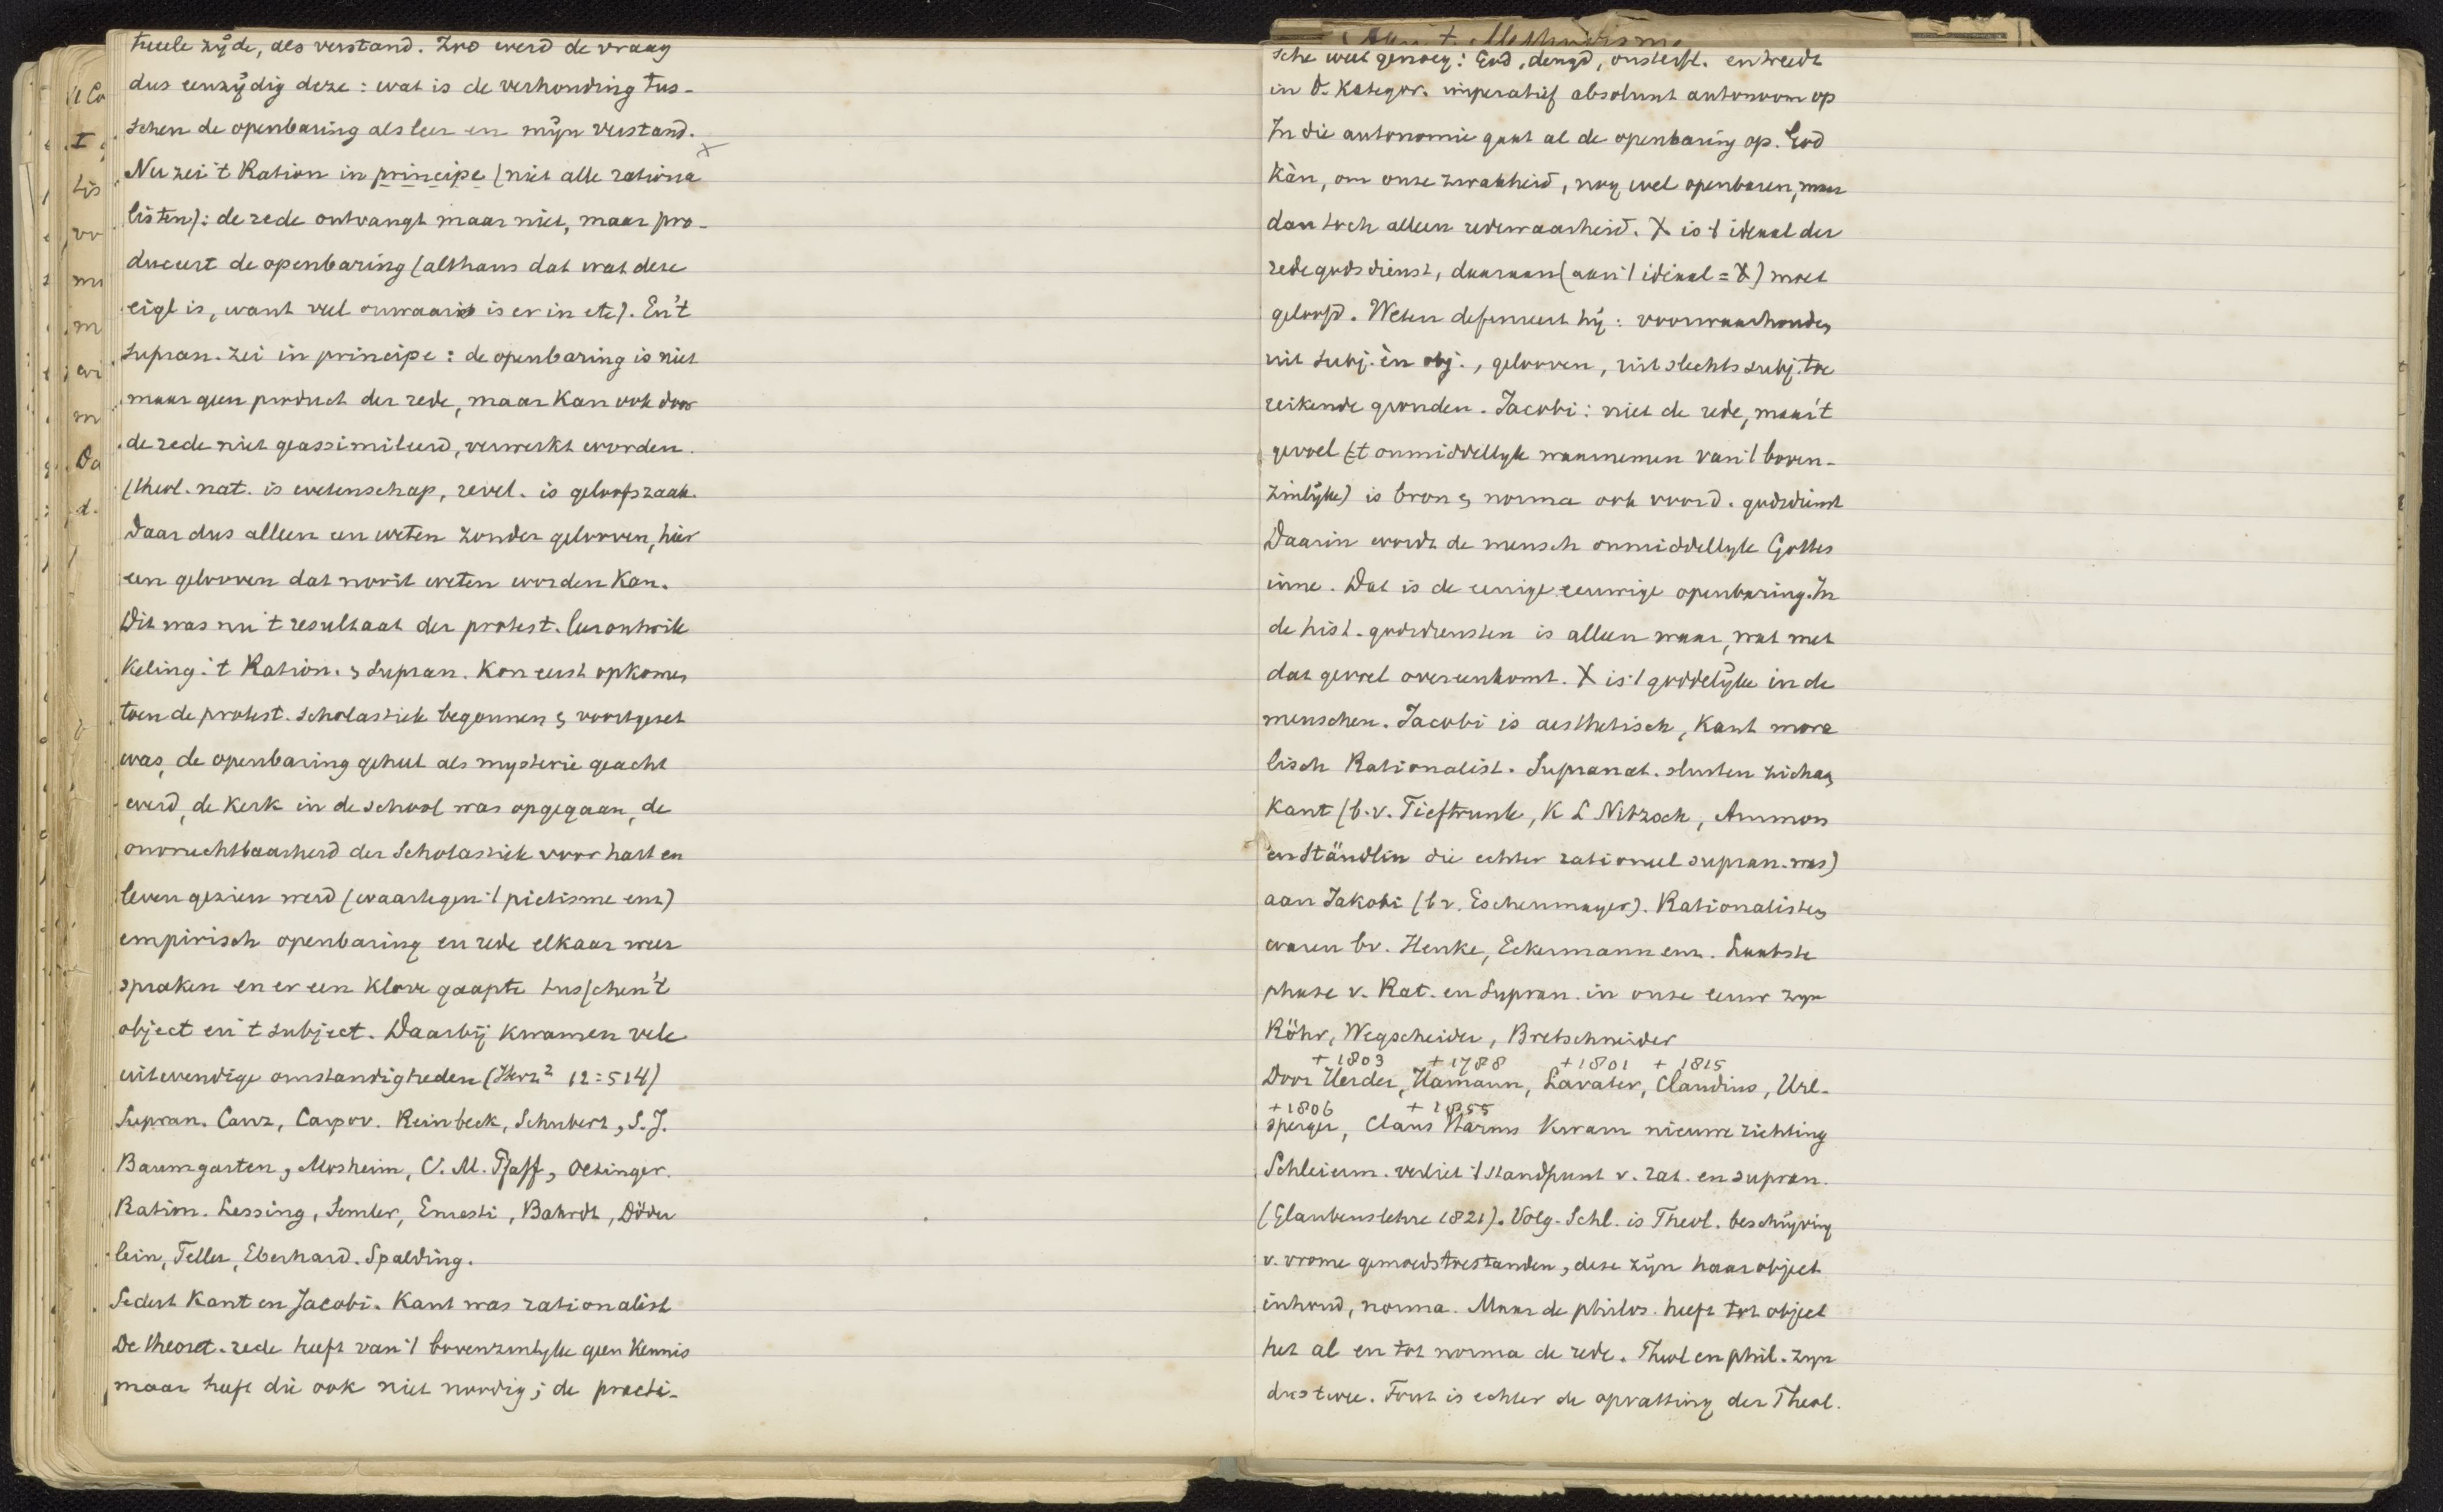 tueele zijde, als verstand. Zoo werd de vraag
dus eenzijdig deze: wat is de verhouding tus-
schen de openbaring als leer en mijn verstand.
Nu zei 't Ration in principe (niet alle rationa
listen): de rede ontvangt maar niet, maar pro-
duceert de openbaring (althans dat wat deze
eigl is, want veel onwaars is er in etc). En 't
supran. zei in principe: de openbaring is niet
maar geen product der rede, maar kan ook door
de rede niet geassimileerd, verwerkt worden.
(theol. nat. is wetenschap, revel. is geloofszaak.
Daar dus alleen een weten zonder gelooven, hier
een gelooven dat nooit weten worden kan.
Dit was nu 't resultaat der protest. leerontwik
keling: 't Ration. & Supran. kon eerst opkomen
toen de protest. scholastiek begonnen & voortgezet
was, de openbaring geheel als mysterie geacht
werd, de kerk in de school was opgegaan, de
onvruchtbaarheid der Scholastiek voor hart en
leven gezien werd (waartegen 't pietisme enz)
empirisch openbaring en rede elkaar weer
spraken en er een klove gaapte tusschen 't
object en 't subject. Daarbij kwamen vele
uitwendige omstandigheden (Herz² 12:514)
Supran. Canz, Carpov. Reinbeck, Schubert, S.J.
Baumgarten, Mosheim, C. M. Pfaff, Oetinger.
Ration. Lessing, Semler, Ernesti, Bahrdt, Döder
lein, Teller, Eberhard. Spalding.
Sedert Kant en Jacobi. Kant was rationalist
De theoret. rede heeft van 't bovenzinlyke geen kennis
maar heeft die ook niet noodig; de practi-
't Methodisme
sche weet genoeg: God, deugd, onsterfl. en treedt
in d. kategor. imperatief absoluut autonoom op
In die autonomie gaat al de openbaring op. God
kàn, om onze zwakheid, nog wel openbaren, maar
dan toch alleen redewaarheid. X is 't ideaal der
redegodsdienst, daaraan (aan 't ideaal = X) moet
geloofd. Weten definieert hij: voorwaarhouden
uit subj. èn obj., gelooven, uit slechts subj. toe
reikende gronden. Jacobi: niet de rede, maar 't
gevoel ('t onmiddellyk waarnemen van 't boven-
zinlijke) is bron & norma ook voor d. godsdienst
Daarin wordt de mensch onmiddellyk Gottes
inne. Dat is de eenige eeuwige openbaring. In
de hist. godsdiensten is alleen waar, wat met
dat gevoel overeenkomt. X is 't goddelijke in de
menschen. Jacobi is aesthetisch, Kant mora
lisch Rationalist. Supranat. sluiten zich aan
Kant (b.v. Tieftrunk, K L Nitzsch, Ammon
en Stäudlin die echter rationeel supran. was)
aan Jakobi (bv. Eschenmayer). Rationalisten
waren bv. Henke, Eckermann enz. Laatste
phase v. Rat. en Supran. in onze eeuw zyn
Röhr, Wegscheider, Bretschneider
+ 1803 + 1788 + 1801 + 1815
Door Herder, Hamann, Lavater, Claudius, Url-
+ 1806 + 1855
sperger, Claus Harms kwam nieuwe richting
Schleierm. verliet 't standpunt v. rat. en supran.
(Glaubenslehre 1821). Volg. Schl. is Theol. beschrijving
v. vrome gemoedstoestanden, deze zijn haar object
inhoud, norma. Maar de philos. heeft tot object
het al en tot norma de rede. Theol en phil. zyn
dus twee. Fout is echter de opvatting der Theol.